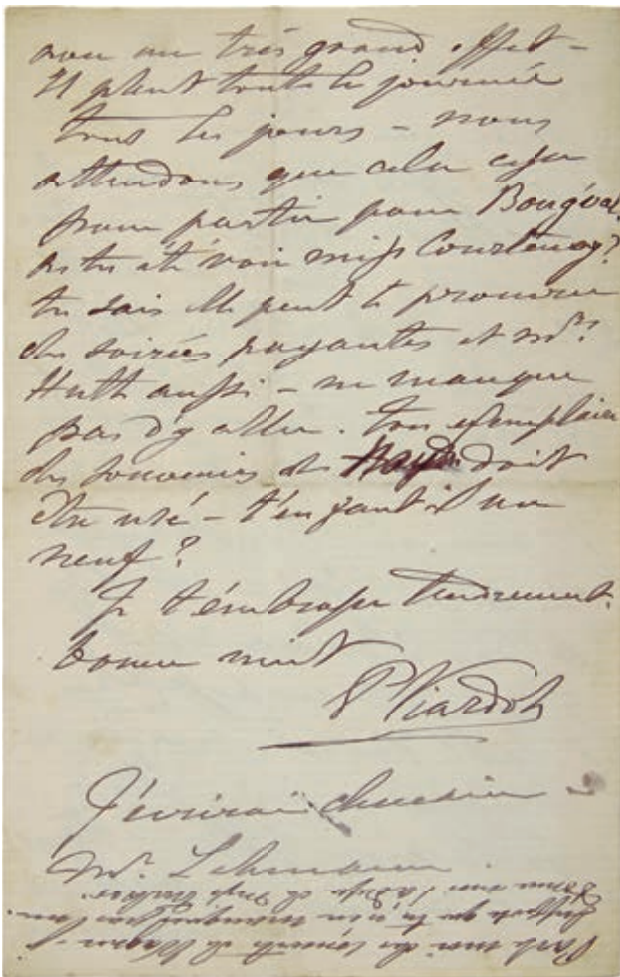 non un très grand effet –
Il pleut toute la journée
tous les jours – nous
attendons que cela cesse
pour partir pour Bougival.
As tu été voir miss Courtenay?
tu sais elle peut te procurer
des soirées payantes et Mrs
Huth aussi – ne manque
pas d'y aller. ton exemplaire
des souvenirs de Haydn doit
être usé – t'en faut il un
neuf?
Je t'embrasse tendrement.
bonne nuit
P Viardot
J'écrirai demain
Mr. Lehmann.
Parle moi des concerts de Wagner – J'
que tu n'en
Donne moi l'adresse de Miss